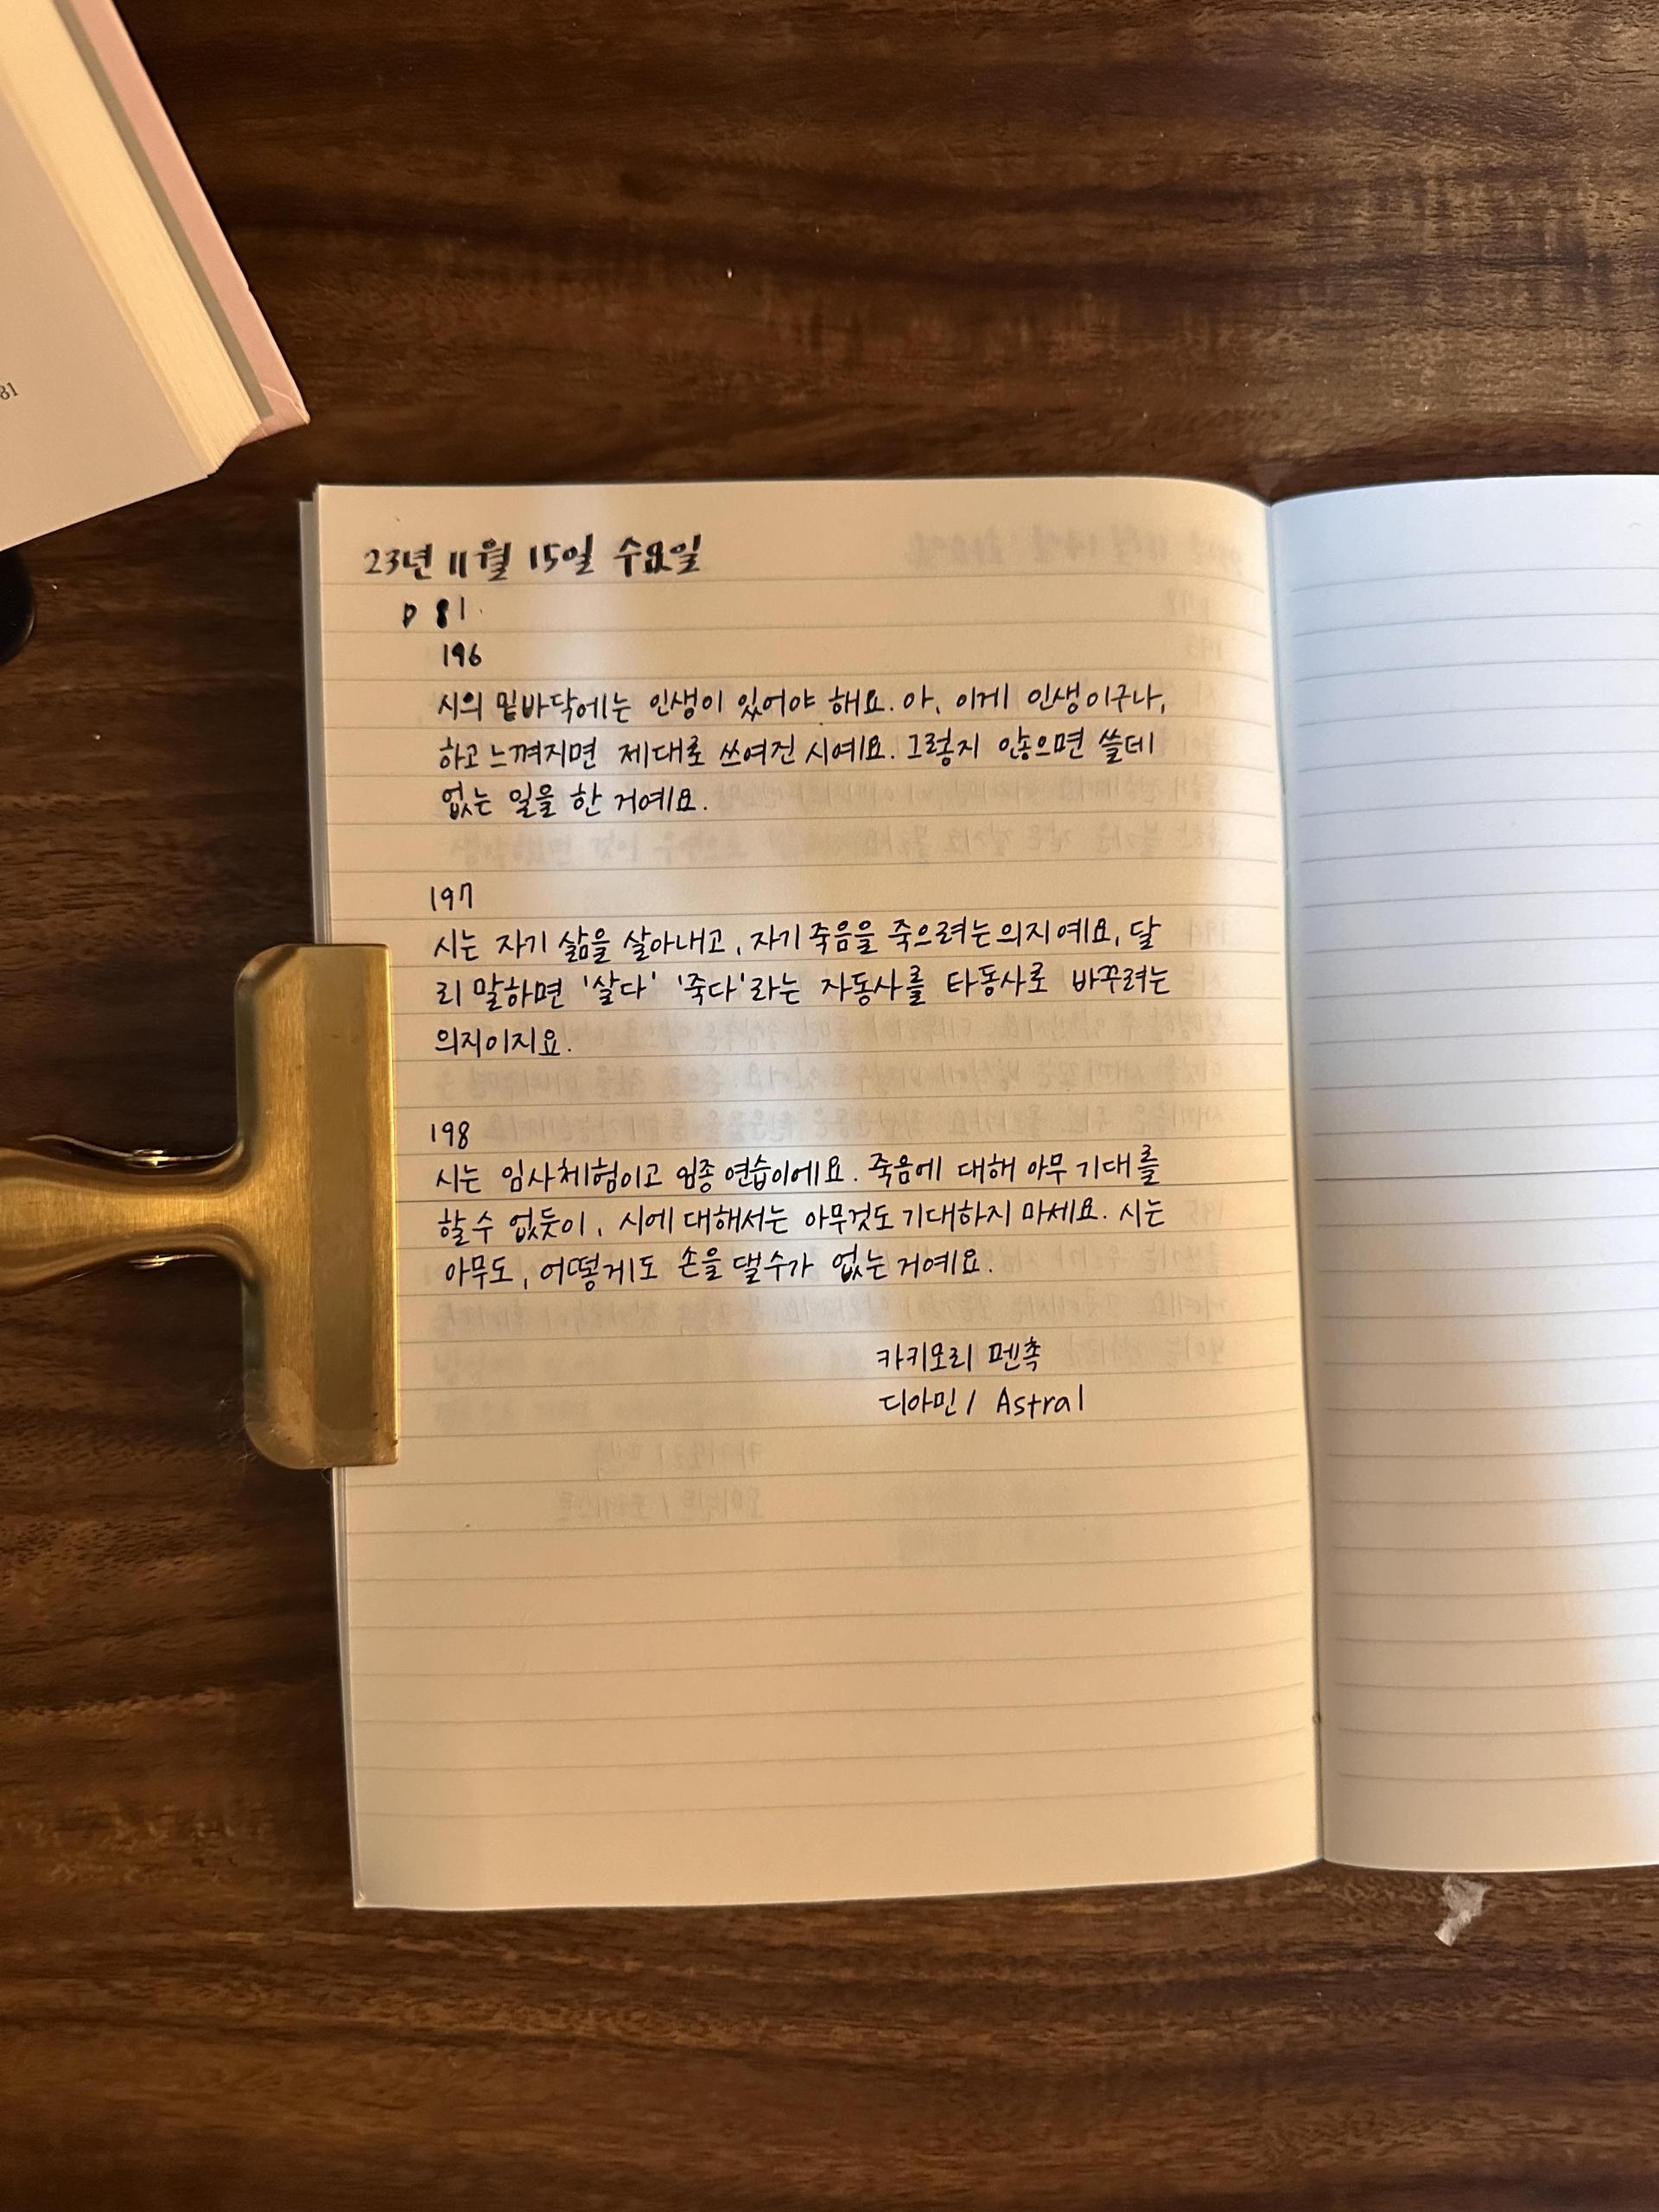 81
23년 11월 15일 수요일
P 81.
196
시의 밑바닥에는 인생이 있어야 해요. 아, 이게 인생이구나,
하고 느껴지면 제대로 쓰여진 시예요. 그렇지 않으면 쓸데
없는 일을 한 거예요.
197
시는 자기 삶을 살아내고, 자기 죽음을 죽으려는 의지예요, 달
리 말하면 '살다' '죽다'라는 자동사를 타동사로 바꾸려는
의지이지요.
198
시는 임사체험이고 임종 연습이에요. 죽음에 대해 아무 기대를
할 수 없듯이, 시에 대해서는 아무것도 기대하지 마세요. 시는
아무도, 어떻게도 손을 댈수가 없는 거예요.
카키모리 멘촉
디아민 / Astral